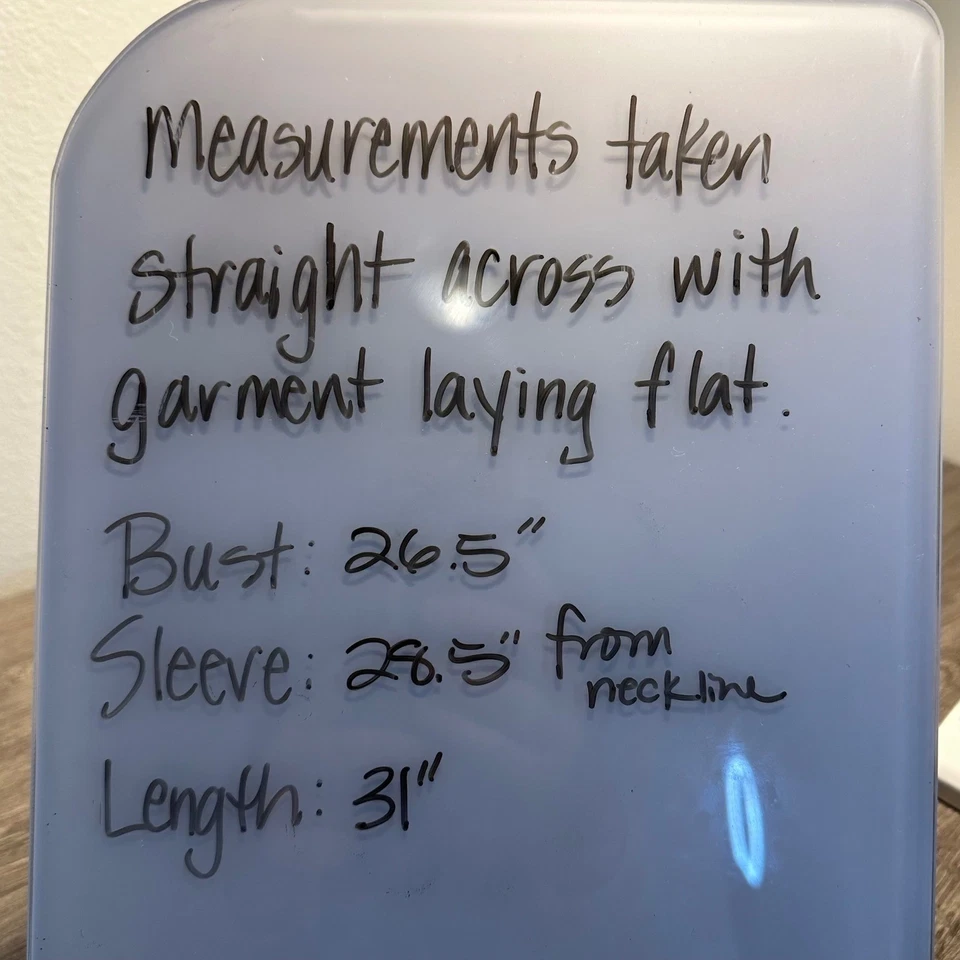 Measurements taken
straight across with
garment laying flat.
Bust: 26.5"
Sleeve: 28.5" from
neckline
Length: 31"